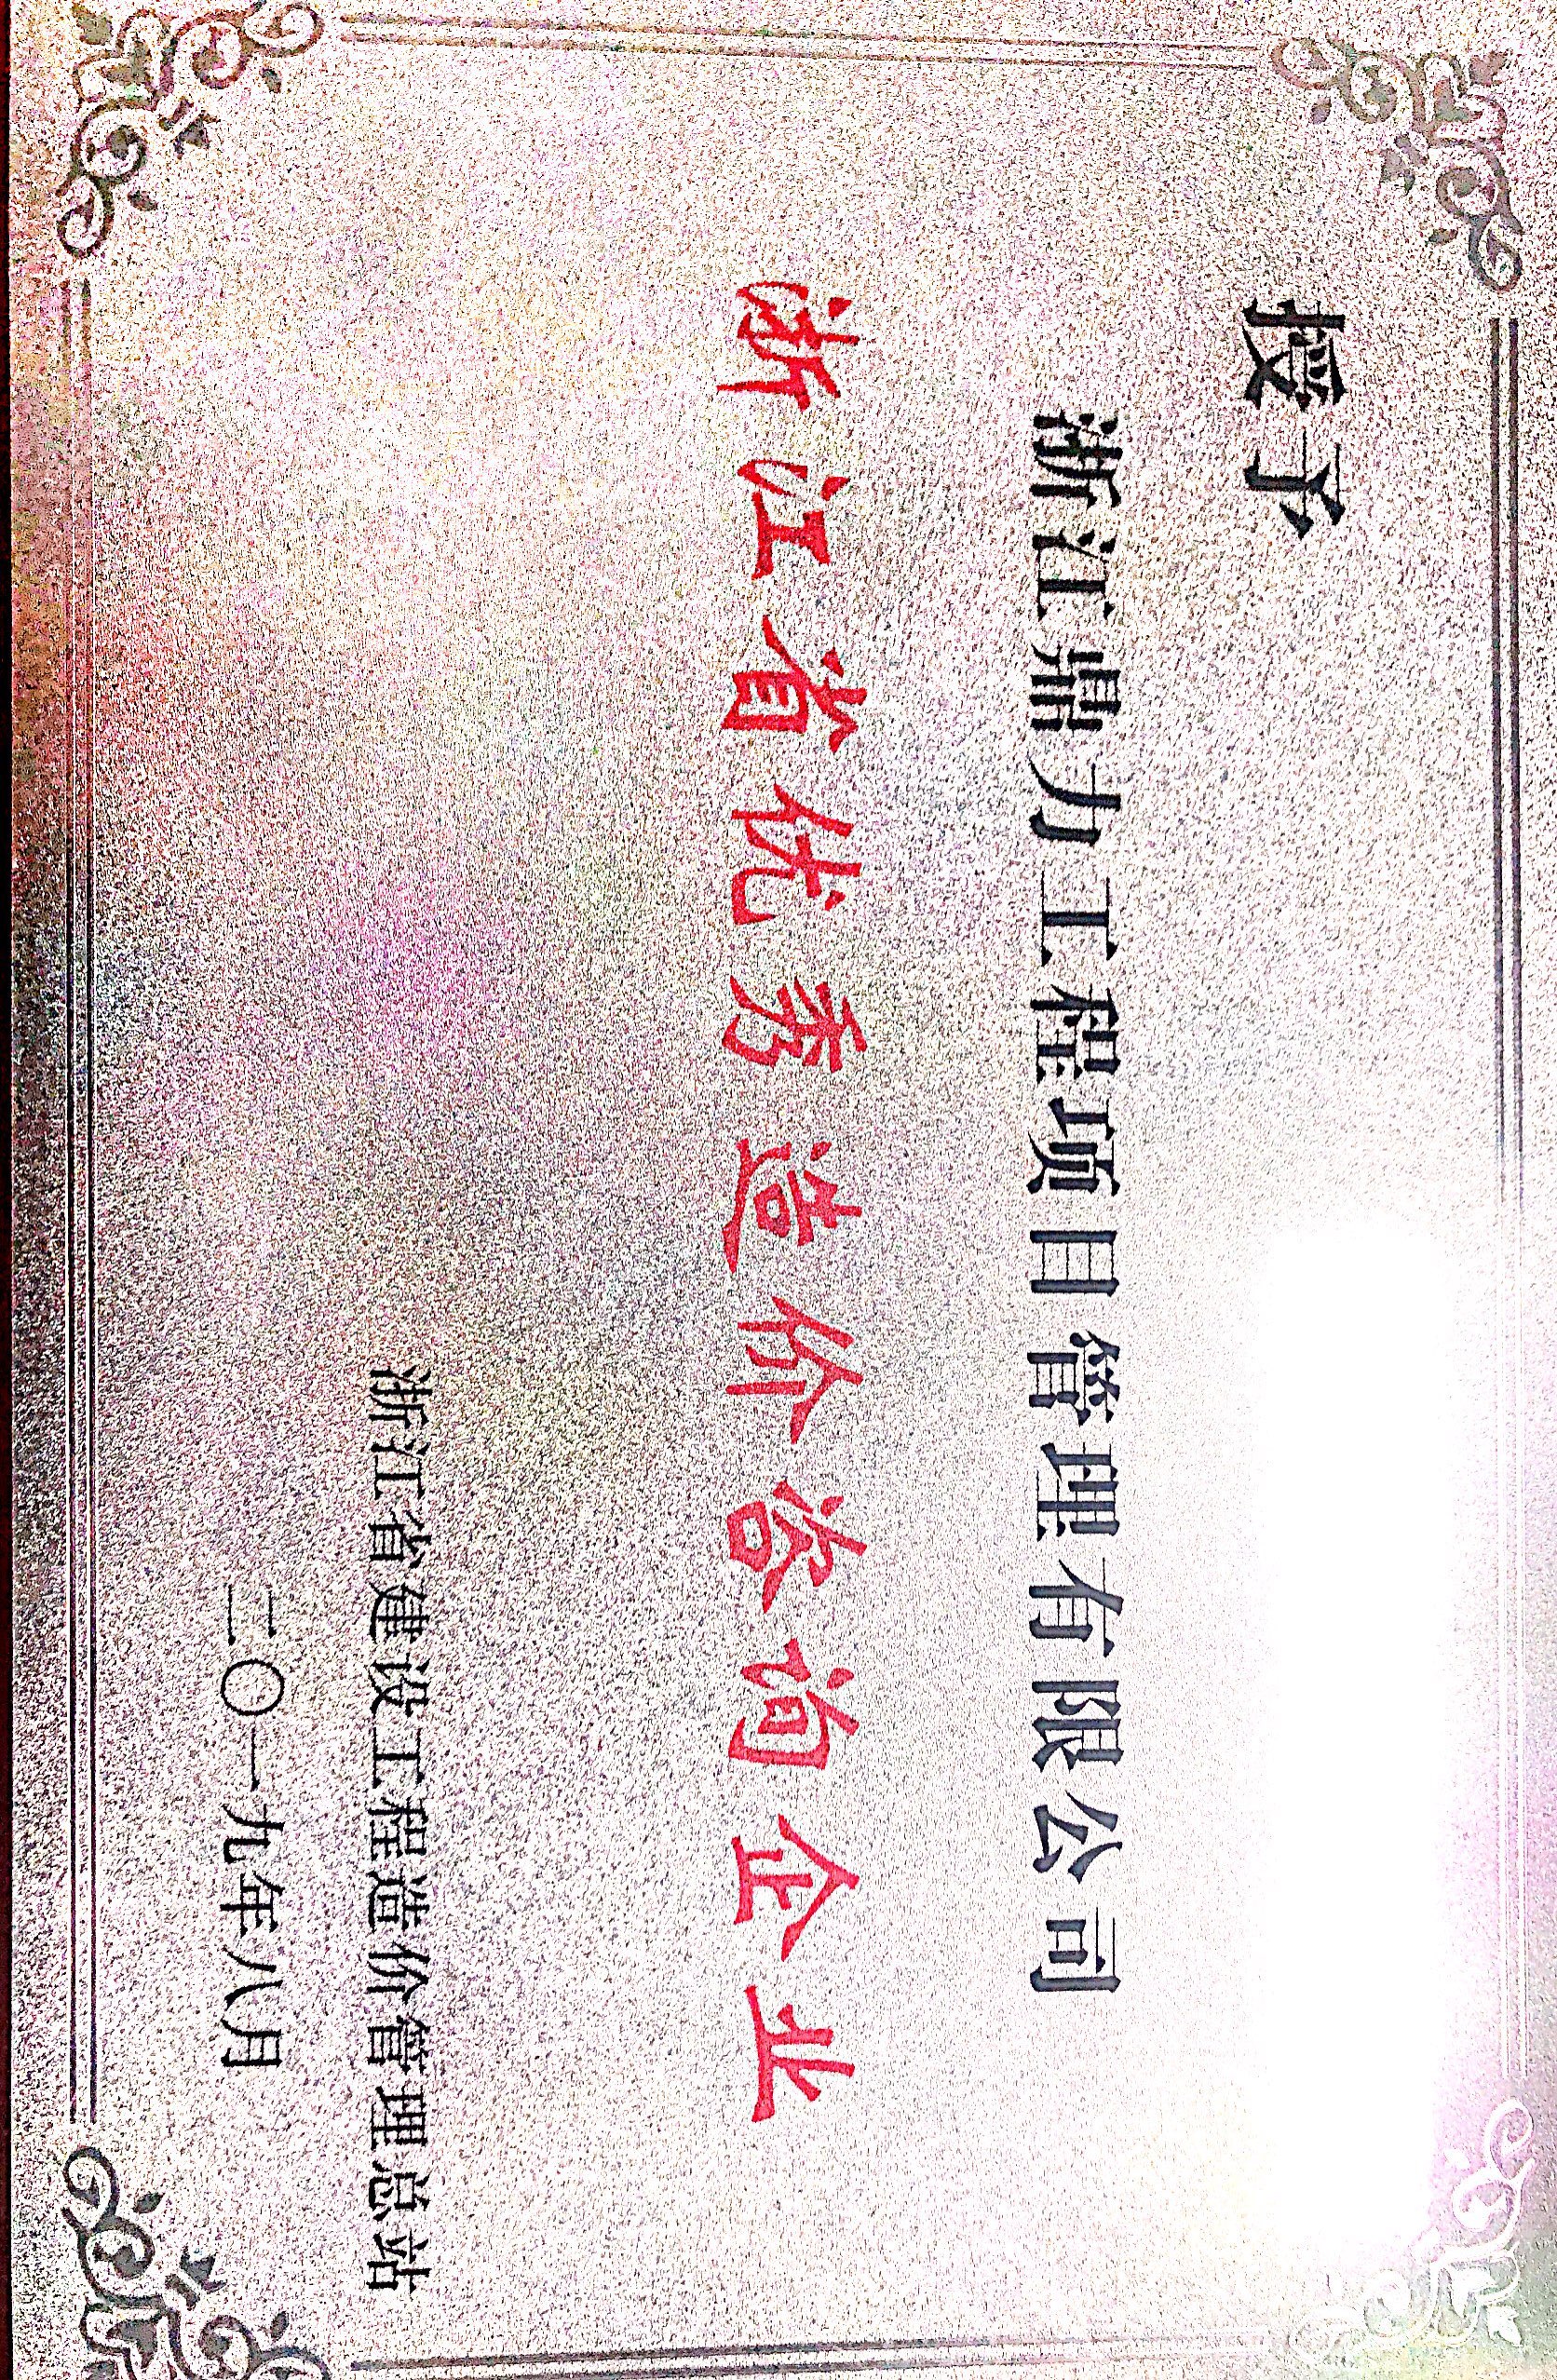 授予
浙江鼎力工程项目管理有限公司
浙江省优秀造价咨询企业
浙江省建设工程造价管理总站
二〇一九年八月